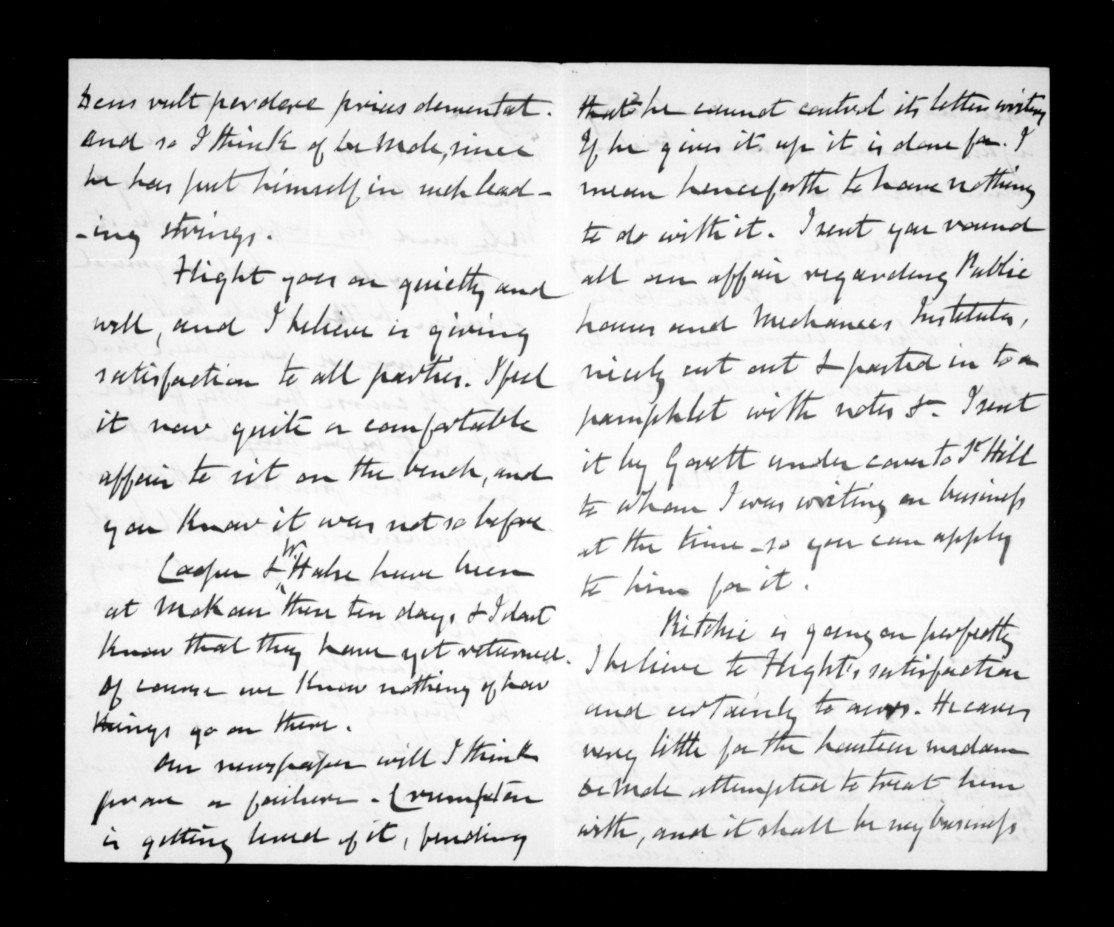 Deus vult perdere prius dementat.
and so I think of & since
he has put himself in such lead-
-ing strings.
Flight goes on quietly and
well, and I believe is giving
satisfaction to all parties. I feel
it now quite a comfortable
affair to sit on the bench, and
you know it was not so before.
Cooper & Wm Halse have been
at Mokau these ten days & I dont
know that they have yet returned.
Of course we know nothing of how
things go on there.
Our newspaper will I think
prove a failure - Crompton
is getting tired of it, finding
that he cannot control its letter writing
If he gives it up it is done for. I
mean henceforth to have nothing
to do with it. I sent you round
all our affair regarding Public
houses and Mechanics Institutes,
nicely cut out & pasted in to a
pamphlet with notes &c. I sent
it by Govett under cover to Dr Hill
to whom I was writing on business
at the time - so you can apply
to him for it.
Ritchie is going on perfectly
I believe to Flight's satisfaction
and certainly to ours. He cares
very little for the hauteur madam
attempted to treat him
with, and it shall be my business